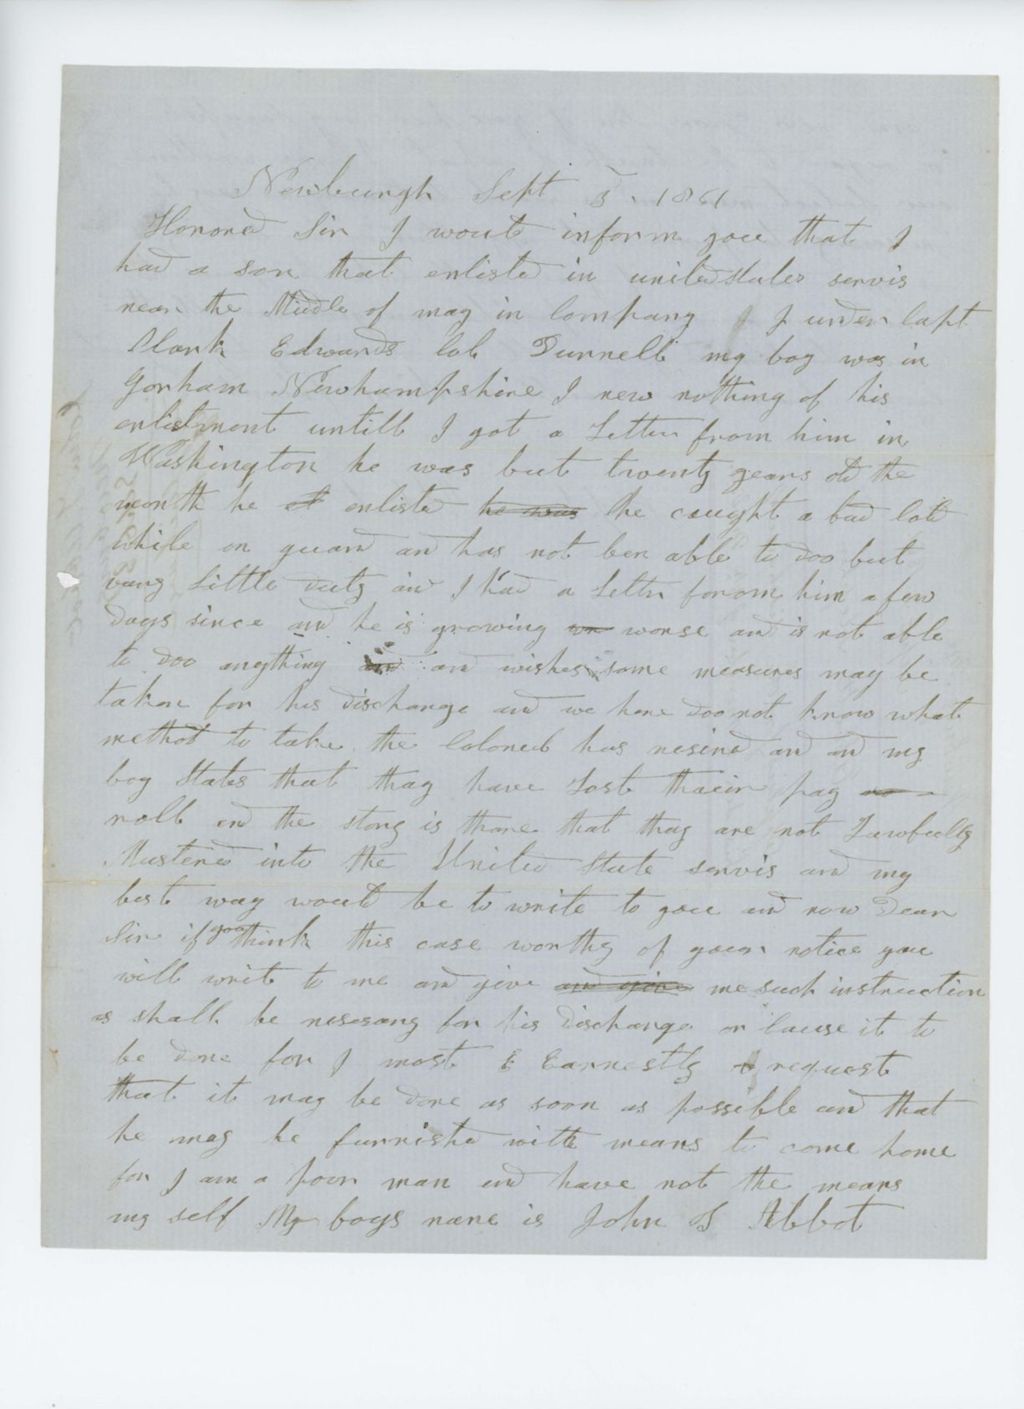 Newburgh Sept 5. 1861
Honored Sir I would inform you that I
had a son that enlisted in united states servis
near the Middle of may in Company I under Capt
Clark Edwards Col Dunnell my boy was in
Gorham Newhampshire I new nothing of his
enlistment untill I got a Letter from him in
Washington he was but twenty years old the
month he enlisted he was he caught a bad cold
While on guard an has not ben able to doo but
vary Little duty and I had a Letter forom him a few
days since and he is growing worse and is not able
to doo anything and and wishes some measures may be
taken for his discharge and we here doo not know what
method to take the Colonel has resind and and my
boy States that thay have Lost thaeir pay
roll and the story is thare that thay are not Lawfully
Mustered into the United State servis and my
best way would be to write to you and now Dear
Sir if you think this case worthy of your notice you
will write to me and give and give me such instruction
as shall be nesesary for his discharge or Cause it to
be done for I most E Earnestly request
that it may be done as soon as possible and that
he may be furnished with means to come home
for I am a poor man and have not the means
my self My boys name is John S Abbot